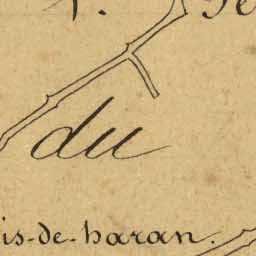 du
is-de-haran.